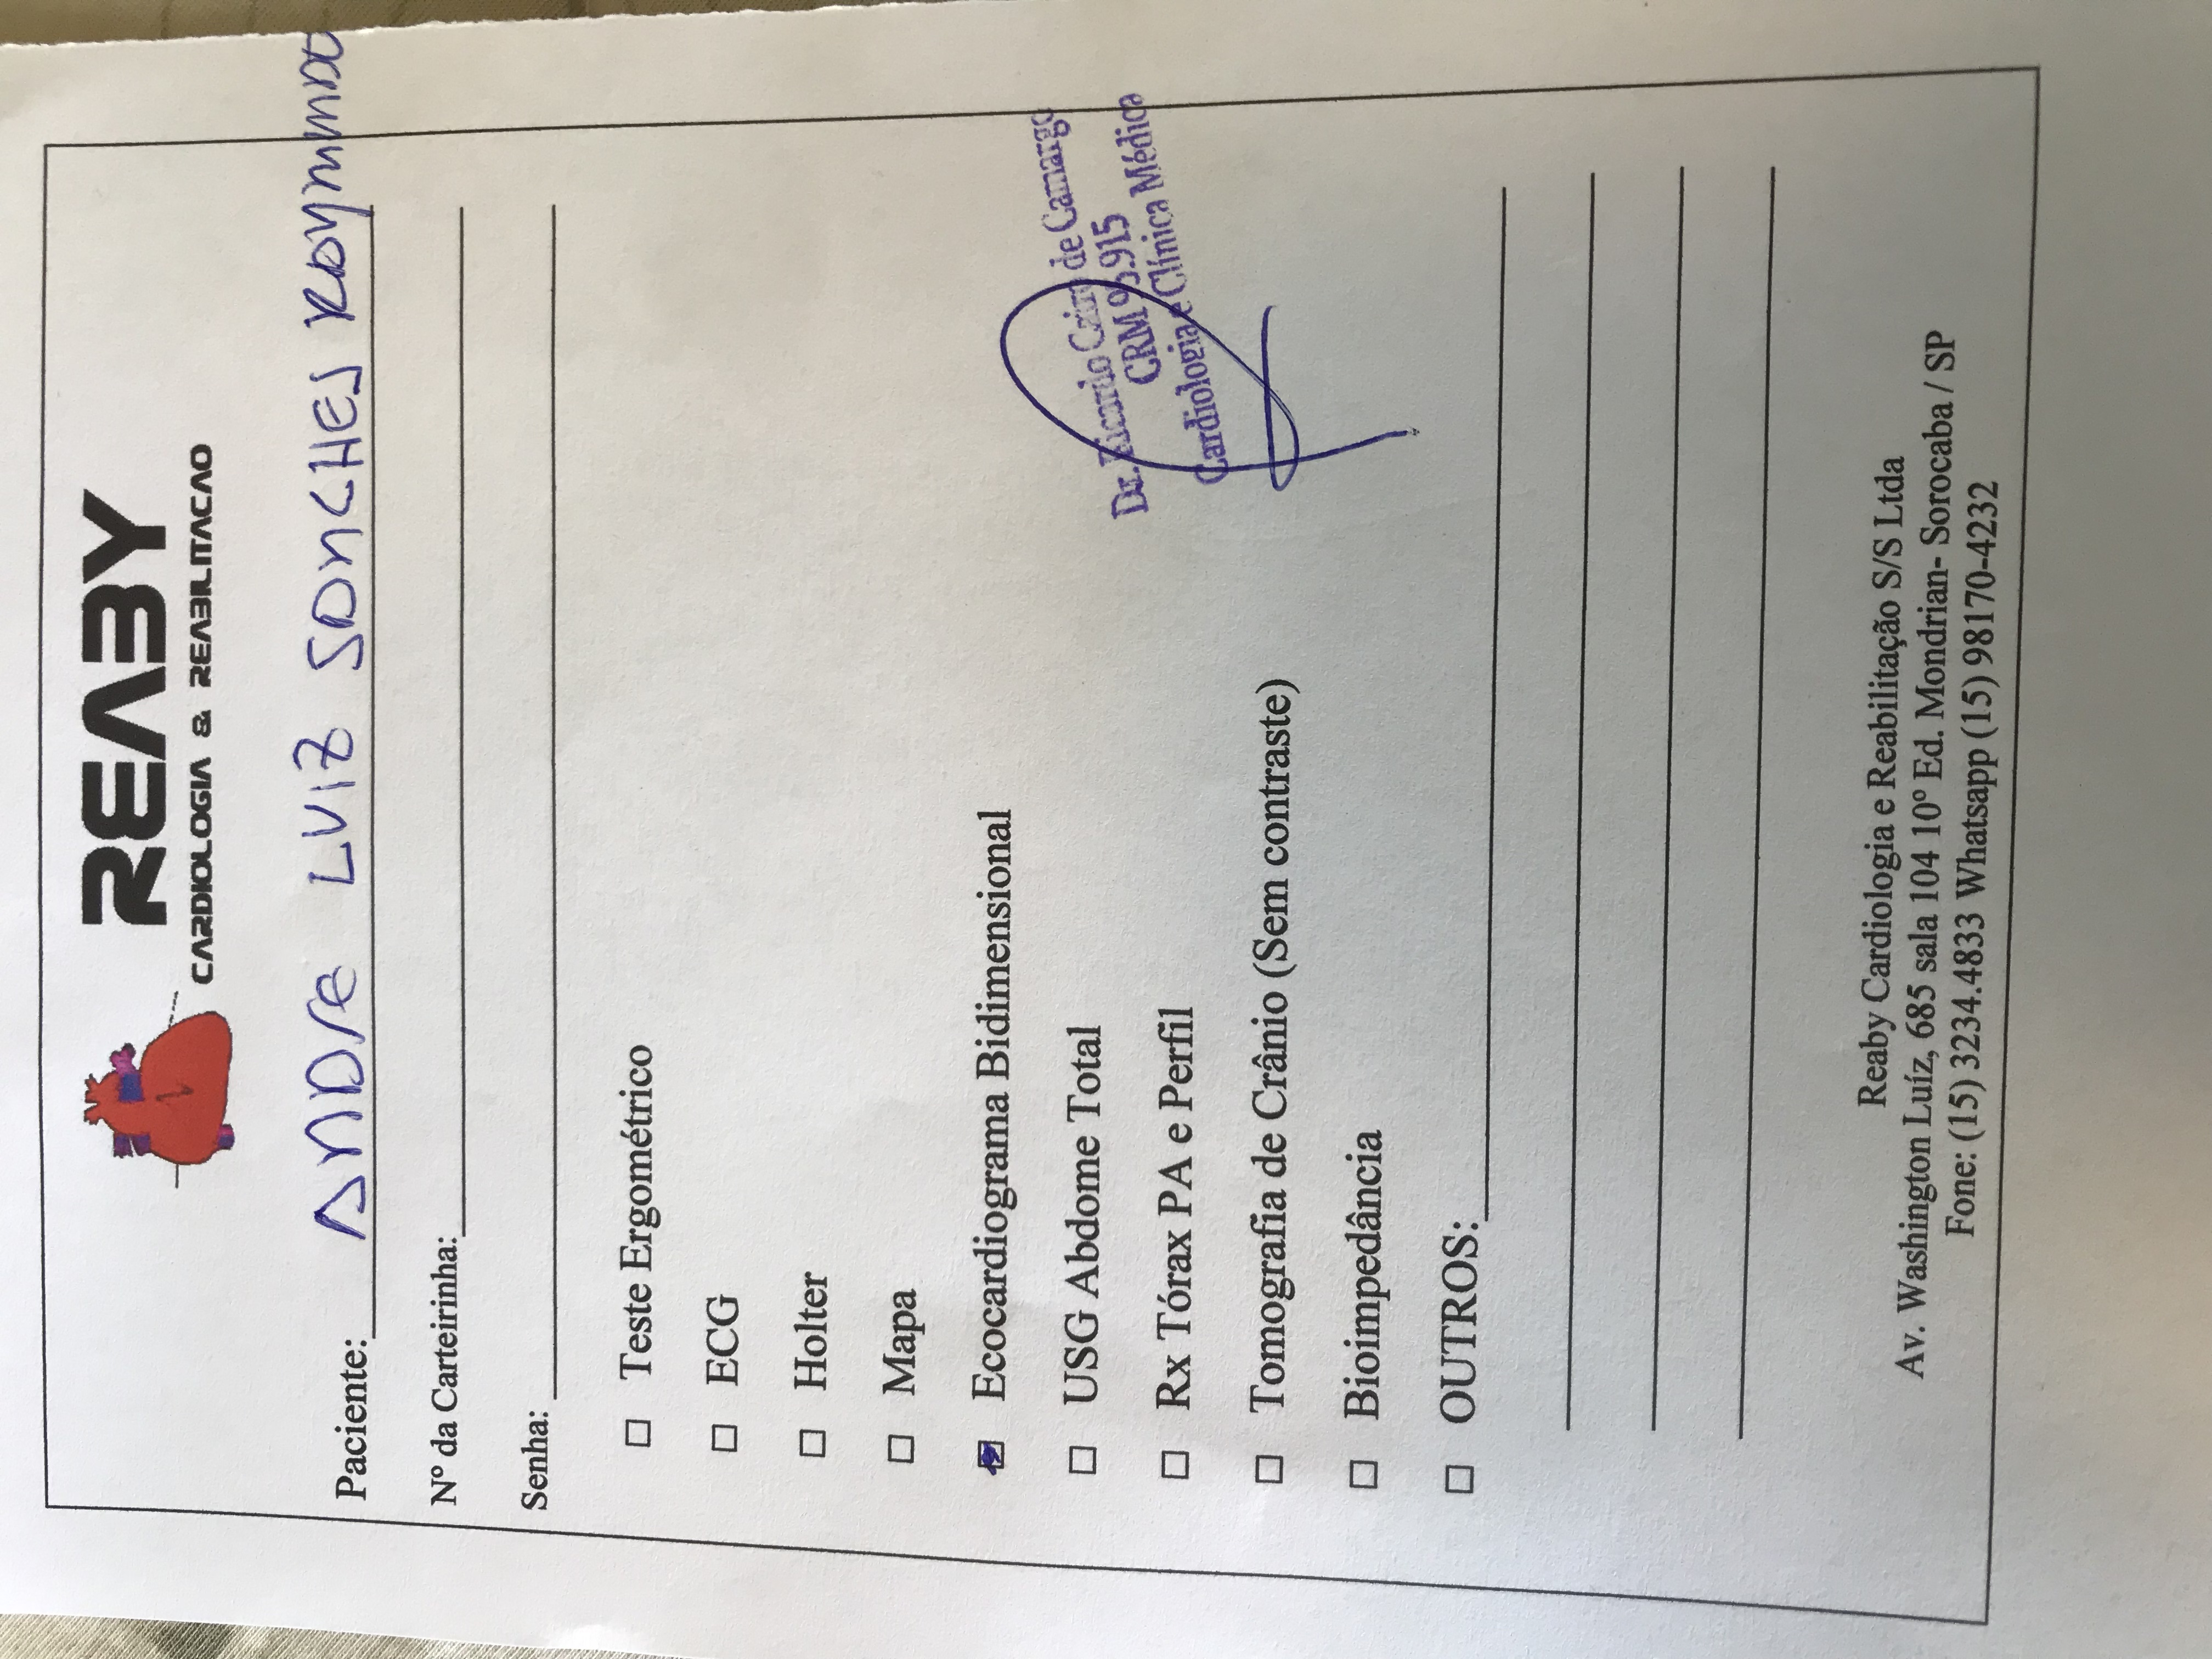 REABY
CARDIOLOGIA & REABILITACAO
Paciente: ANDRE LUIZ SANCHES RAYMUNDO
Nº da Carteirinha:
Senha:
☐ Teste Ergométrico
☐ ECG
☐ Holter
☐ Mapa
☑ Ecocardiograma Bidimensional
☐ USG Abdome Total
☐ Rx Tórax PA e Perfil
☐ Tomografia de Crânio (Sem contraste)
☐ Bioimpedância
☐ OUTROS:
Dr. Ricardo Cairo de Camargo
CRM 95.915
Cardiologia e Clínica Médica
Reaby Cardiologia e Reabilitação S/S Ltda
Av. Washington Luíz, 685 sala 104 10º Ed. Mondrian- Sorocaba / SP
Fone: (15) 3234.4833 Whatsapp (15) 98170-4232